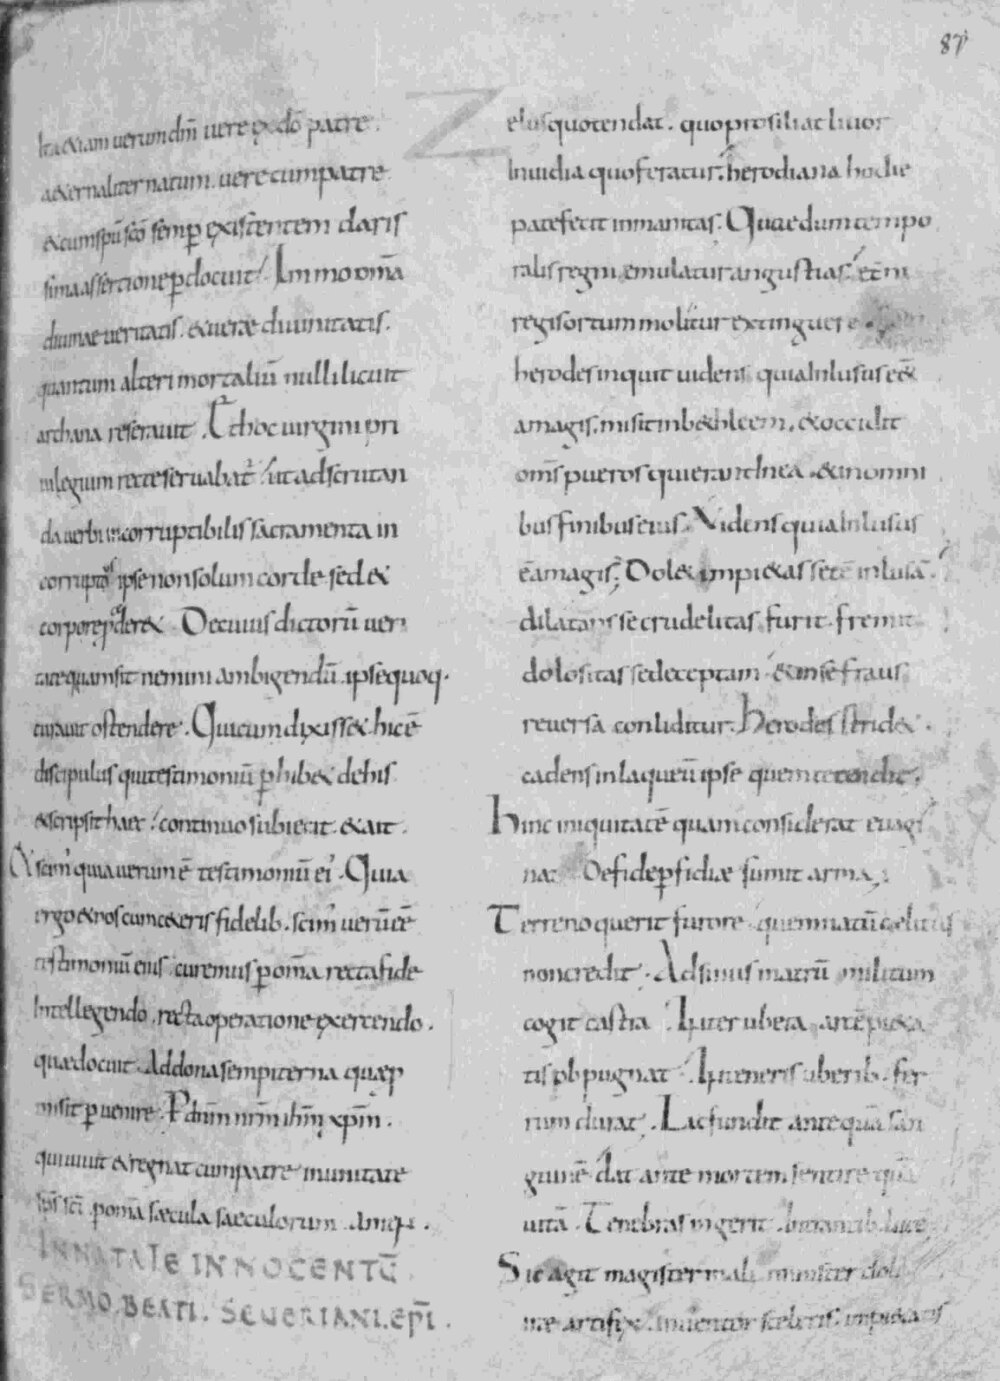 87
Ita & iam uerum dm̄ uere ex dō patre.
a&ernaliter natum. uere cum patre
& cum sp̄u sc̄o semp existentem claris
sima assertione pdocuit. Immo om̄a
diuinae ueritatis. & uerae diuinitatis.
quantum alteri mortaliū nulli licuit
archana reserauit. Et hoc uirgini pri
uilegium recte seruabat̄. ut ad scrutan
da uerbi incorruptibilis sacramenta in
corruptos ipse non solum corde sed &
corpore pder&. De cuius dictorū ueri
tate quam sit nemini ambigendū. ipse quoq.
curauit ostendere. Qui cum dixiss& hic ē
discipulus qui testimoniū phib& de his
& scripsit haec. continuo subiecit. & ait.
& scim' quia uerum ē testimoniū ei'. Quia
ergo & nos cum ceteris fidelib. scim' uerū ēē
testimoniū eius. curemus p om̄a recta fide
Intellegendo. recta operatione exercendo.
quae docuit. Ad dona sempiterna quae p
misit puenire. P dn̄m nr̄m ihm̄ xpm̄.
qui uiuit & regnat cum patre in unitate
sp̄s sc̄i. p om̄a saecula saeculorum. Amen.
IN NATALE INNOCENTŪ
SERMO. BEATI. SEUERIANI. EPĪ.
Z
elus quo tendat. quo prosiliat liuor
Inuidia quo feratur. herodiana hodie
patefecit inmanitas. Quae dum tempo
ralis regni emulatur angustias. et̄ni
regis ortum molitur extinguere
herodes inquit uidens quia Inlusus e&̄
a magis. misit in b&hleem. & occidit
om̄s pueros qui erant In ea. & in omni
bus finibus eius. Videns quia Inlusus
ēe a magis. Dol& impi&as se eē inlusā.
dilatans se crudelitas. furit. fremit
dolositas se deceptam. & in se fraus
reuersa conliditur. herodes strid&.
cadens in laqueū ipse quem tetendit.
hinc iniquitatē quam considerat euagi
nat. De fide pfidiae sumit arma.
Terreno querit furore quem natū caelitus
non credit. Ad sinus matrū militum
cogit castra. Inter ubera arcē pi&a
tis obpugnat. In teneris uberib. fer
rum durat. Lac fundit ante quā san
guinē. dat ante mortem sentire quā
uitā. Tenebras ingerit. Intrantib. luce
Sic agit magister mali minister doli
irae artifex. inuentor sceleris. impi&atis